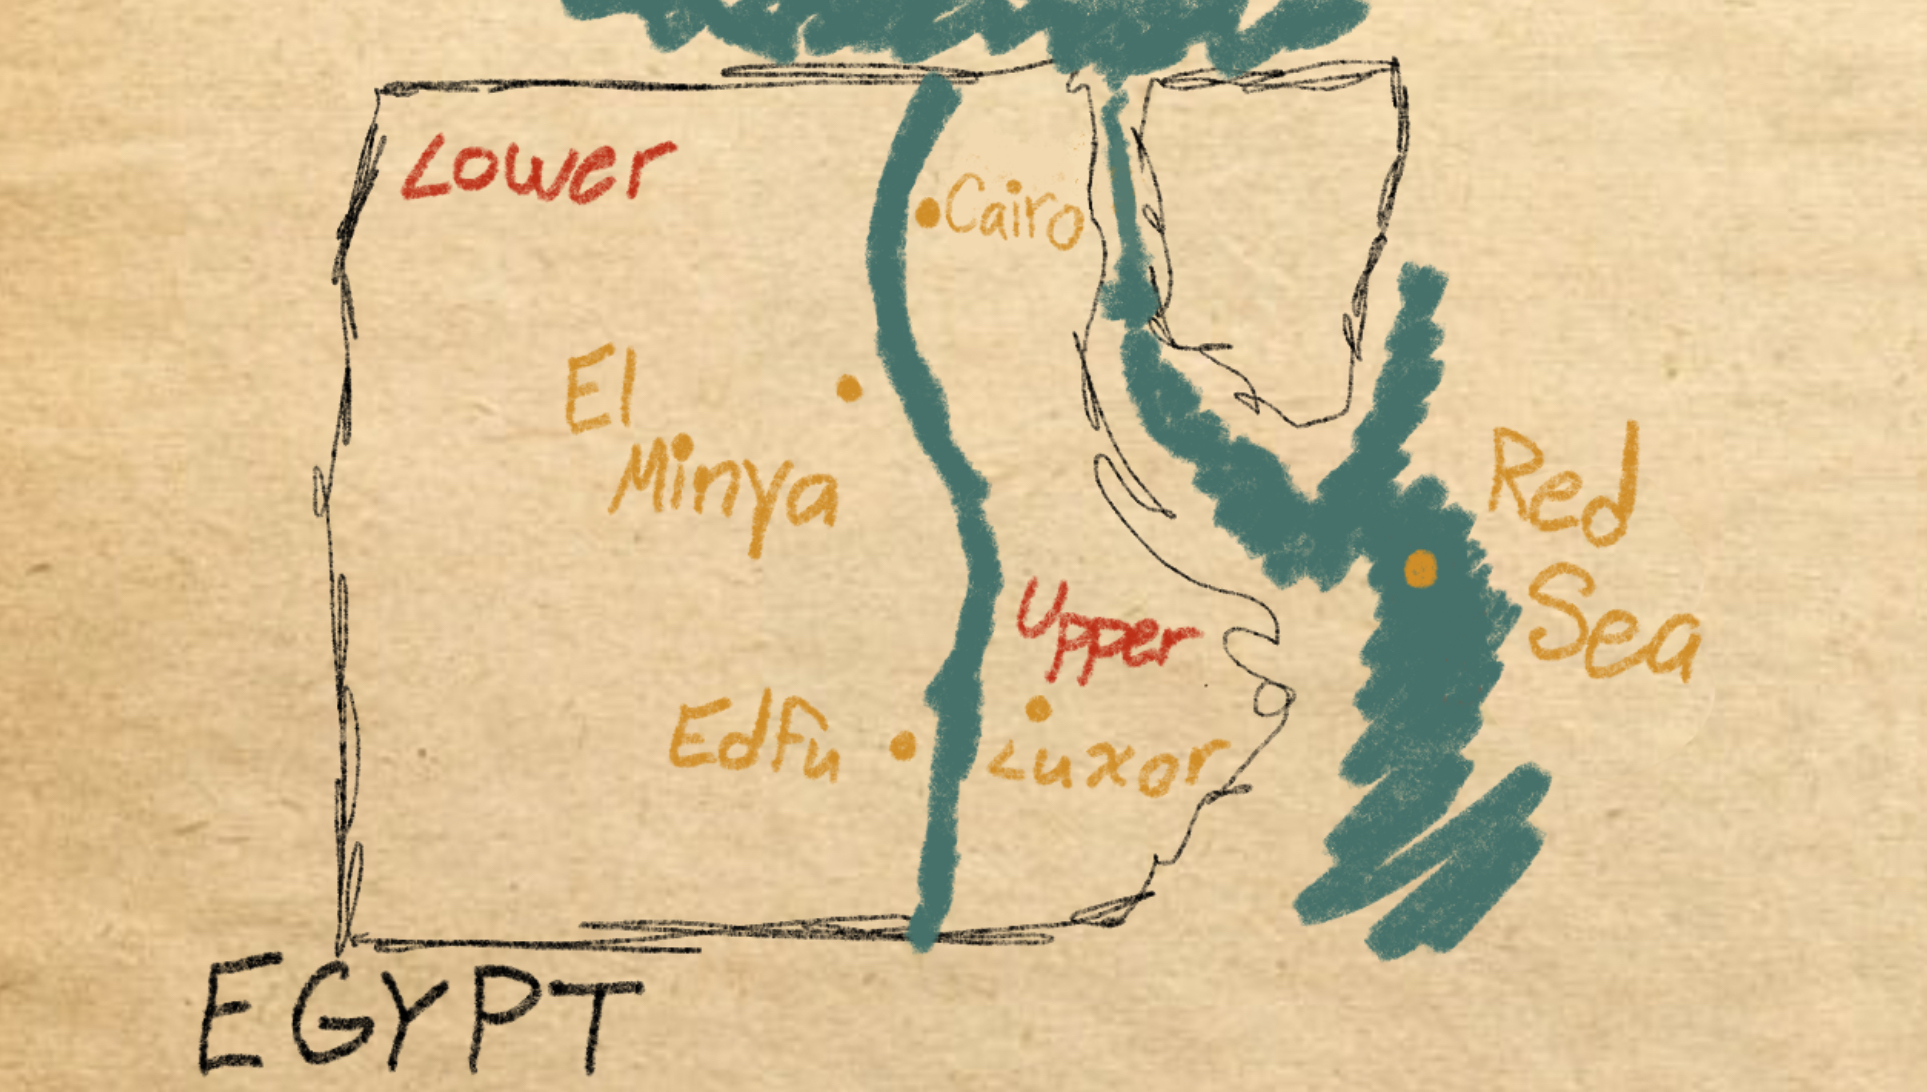 Lower
Cairo
El
Minya
Red
Sea
Upper
Edfu
Luxor
EGYPT